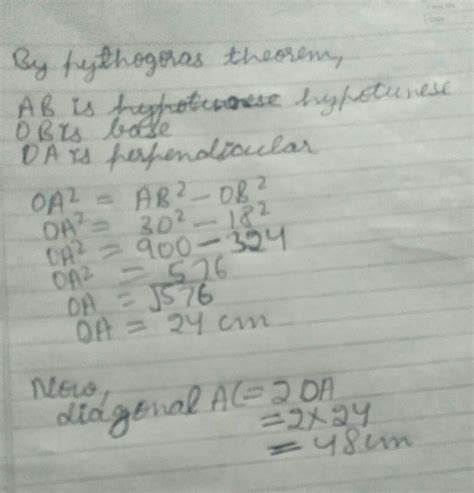 By pythogoras theorem,
AB is hypotunese hypotunese
OB is base
OA is perpendicular
OA² = AB² - OB²
OA² = 30² - 18²
OA² = 900 - 324
OA² = 576
OA = √576
OA = 24 cm
Now,
diagonal AC = 2 OA
= 2 × 24
= 48 cm